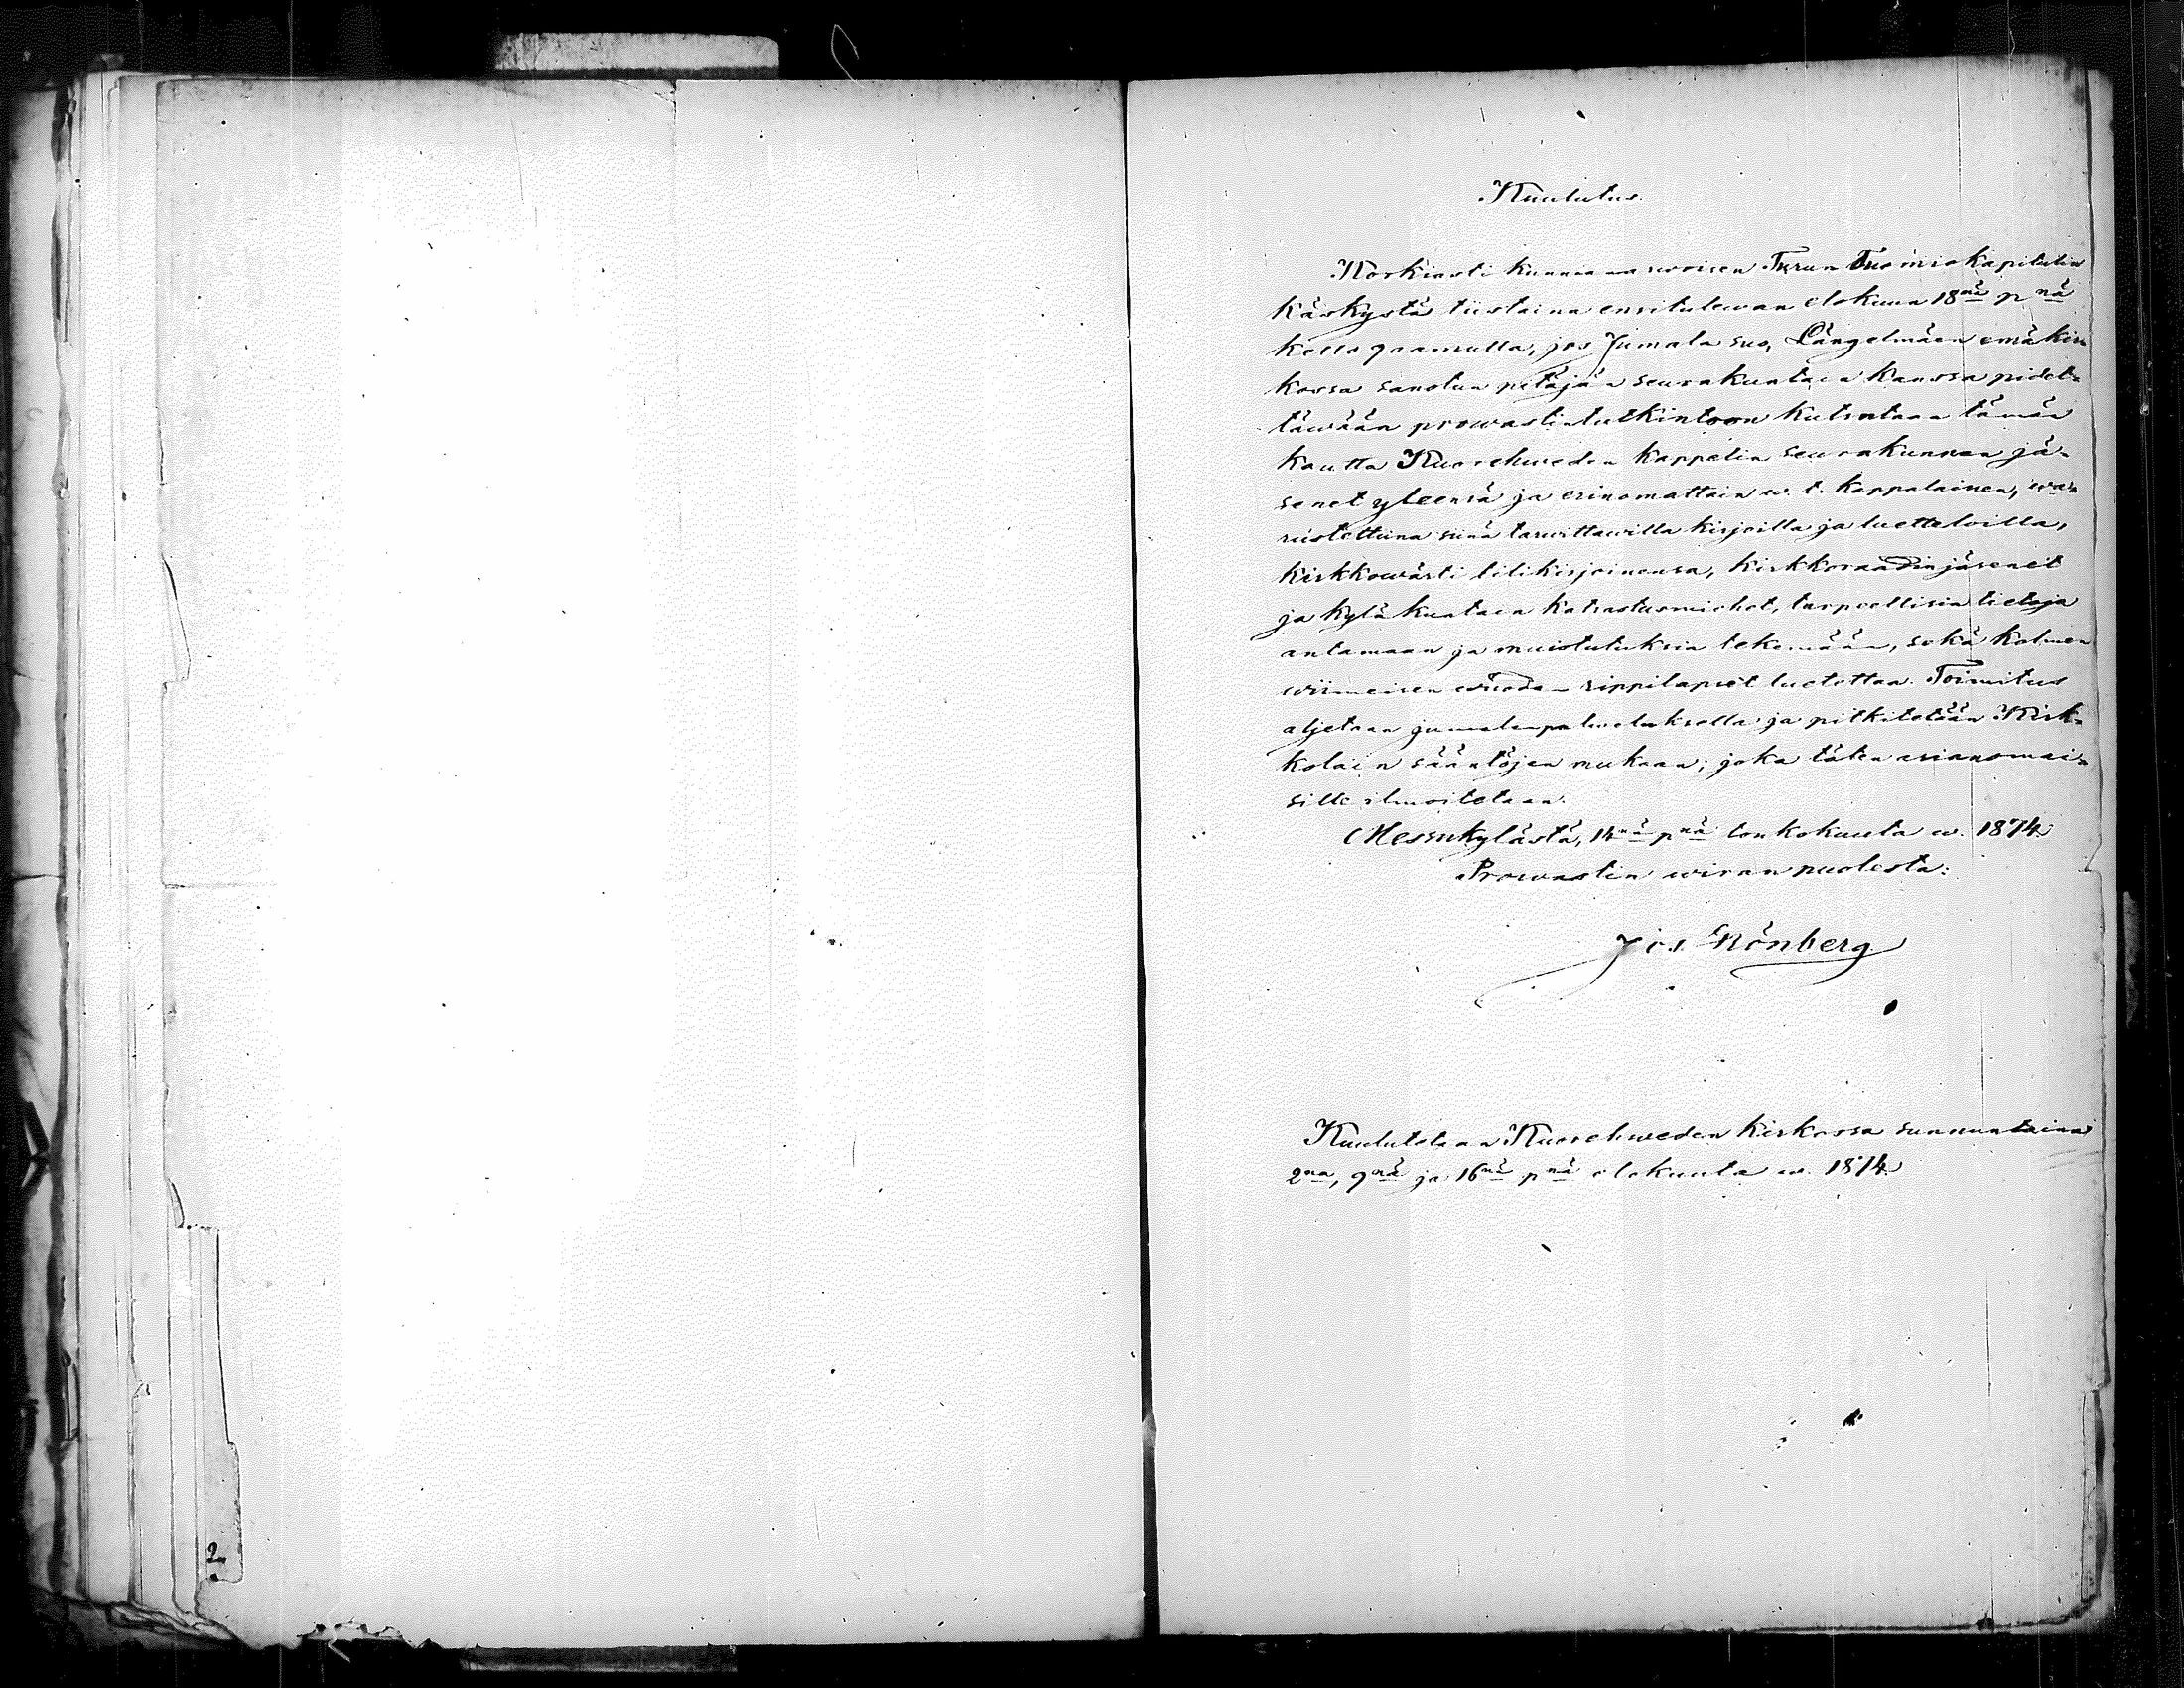 Kuulutus.
Korkiasti kunnia arwoisen Turun Tuomiokapitulin
käskystä tiistaina ensitulewan elokuun 18nä pnä
kello 9 aamulla, jos Jumala suo, Längelmäen emäkir-
kossa sanotun pitäjän seurakuntain kanssa pidet-
täwään prowastintutkintoon kutsutaan tämän
kautta Kuorehweden kappelin seurakunnan jä-
senet yleensä ja erinomattain w. t. kappalainen, wa-
rustettuna siinä tarwittawilla kirjoilla ja luetteloilla,
kirkkowärti tilikirjoinensa, kirkkoraadin jäsenet
ja kyläkuntain katsastusmiehet, tarpeellisia tietoja
antamaan ja muistutuksia tekemään, sekä kolmen
wiimeisen wuoden rippilapset luetettaa. Toimitus
aljetaan jumalanpalweluksella ja pitkitetään Kirk-
kolain sääntöjen mukaan; joka täten asianomai-
sille ilmoitetaan.
Messukylästä, 14nä pnä toukokuuta w. 1874.
Prowastin wiran puolesta:
Jos. Grönberg
Kuulutetaan Kuorehweden kirkossa sunnuntaina
2na, 9nä ja 16nä pnä elokuuta w. 1874.
2